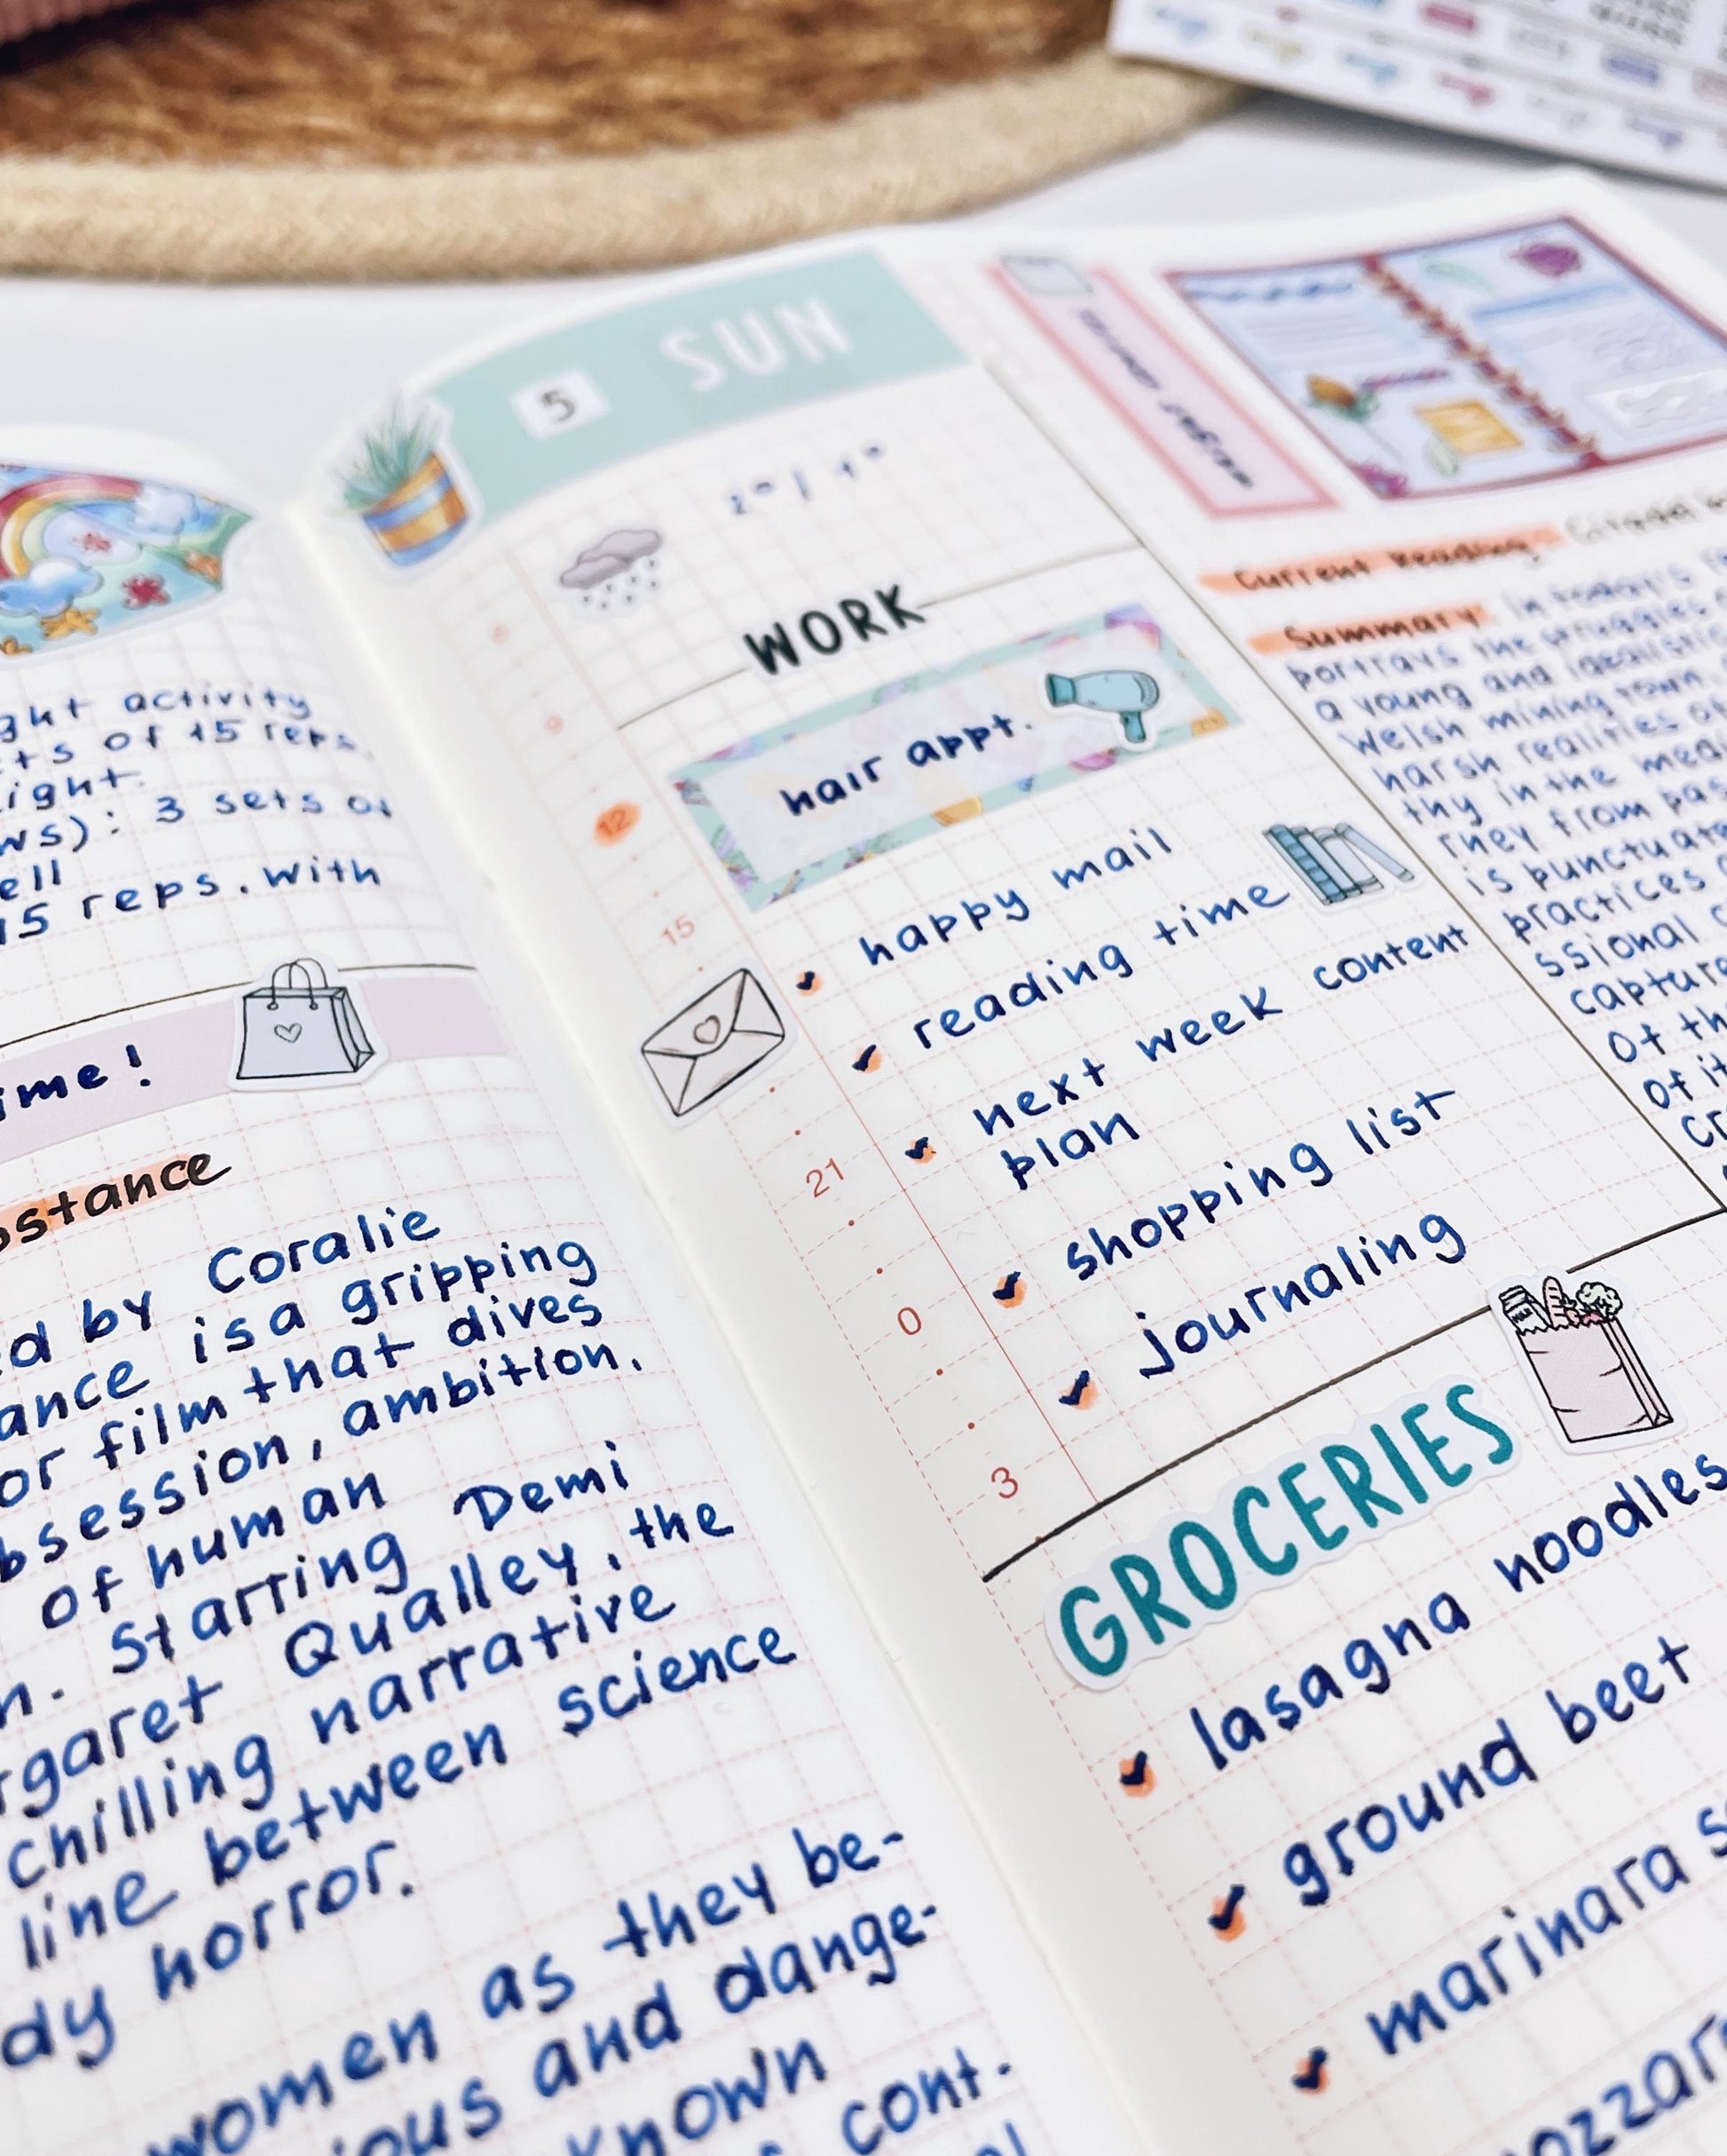 ght activity
ts of 15 reps
ight.
ws): 3 sets of
ell
15 reps. with
ime!
bstance
ed by Coralie
ance is a gripping
or film that dives
bsession, ambition,
of human
n. Starring Demi
rgaret Qualley, the
chilling narrative
line between science
dy horror.
women as they be-
ious and dange-
known
cont.
5 SUN
WORK
hair appt.
9
12
15
21
0
3
happy mail
reading time
next week content
plan
shopping list
journaling
GROCERIES
lasagna noodles
ground beef
marinara s
ozzar
Current Reading: Citadel
Summary: In today's
portrays the struggles
a young and idealistic
Welsh mining town,
harsh realities of
thy in the medi
rney from pas
is punctuat
practices
ssional c
capture
of th
of it
cr